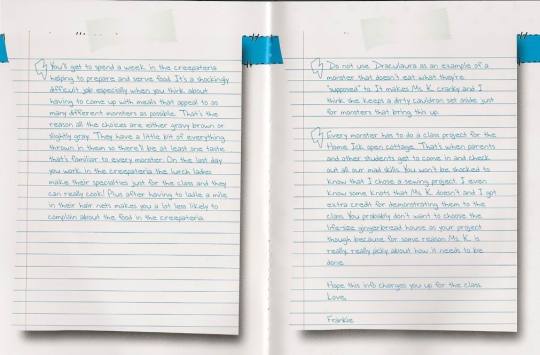 You'll get to spend a week in the creepateria
helping to prepare and serve food. It's a shockingly
difficult job especially when you think about
having to come up with meals that appeal to as
many different monsters as possible. That's the
reason all the choices are either gravy brown or
slightly gray. They have a little bit of everything
thrown in them so there'll be at least one taste
that's familiar to every monster. On the last day
you work in the creepateria the lunch ladies
make their specialties just for the class and they
can really cook! Plus after having to ladle a mile
in their hair nets makes you a lot less likely to
complain about the food in the creepateria.
Do not use Draculaura as an example of a
monster that doesn't eat what they're
"supposed" to. It makes Ms. K. cranky and I
think she keeps a dirty cauldron set aside just
for monsters that bring this up.
Every monster has to do a class project for the
Home Ick open cottage. That's when parents
and other students get to come in and check
out all our mad skills. You won't be shocked to
know that I chose a sewing project. I even
know some knots that Ms. K. doesn't and I got
extra credit for demonstrating them to the
class. You probably don't want to choose the
life-size gingerbread house as your project
though because for some reason Ms. K. is
really, really picky about how it needs to be
done.
Hope this info charges you up for the class.
Love,
Frankie